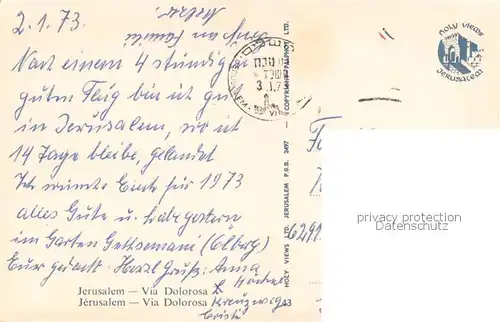 2.1.73.
Nach einem 4 stündigen
guten Flug bin ich gut
in Jerusalem, wo ich
14 Tage bleibe, gelandet
Ich wünsche Euch für 1973
alles Gute u. habe gestern
im Garten Gethsemani (Ölberg)
Eurer gedacht. Herzl. Grüße Anna
Jerusalem — Via Dolorosa
Jérusalem — Via Dolorosa
Kreuzweg
Christi
43
HOLY VIEWS LTD. JERUSALEM P.O.B. 2497
COPYRIGHT PALPHOT LTD.
HOLY VIEWS
JERUSALEM
6291
privacy protection
Datenschutz